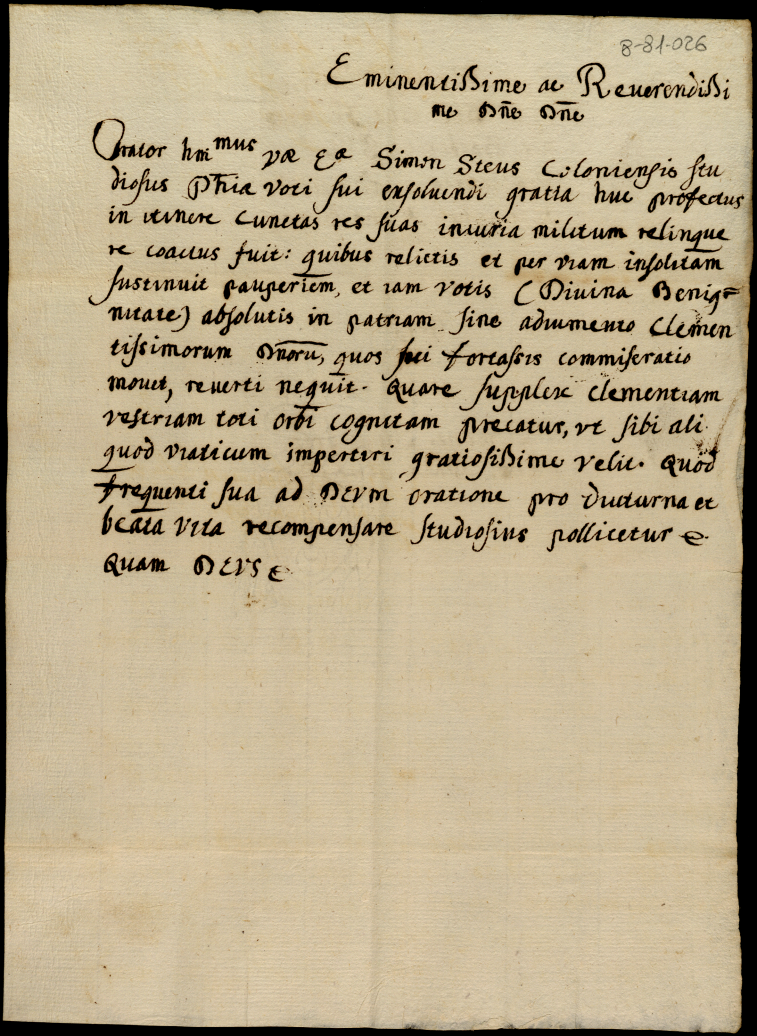 8-81-026
Eminentissime ac Reuerendissi
me Dn̄e Dn̄e
Orator hmimus Væ Eæ Simon Steus Coloniensis stu
diosus Ph̄iæ voti sui exsoluendi gratia huc profectus
in itinere cunctas res suas iniuria militum relinque
re coactus fuit: quibus relictis et per viam insolitam
sustinuit pauperiem, et iam votis (Diuina Benig=
nitate) absolutis in patriam sine adiumento Clemen
tissimorum Dn̄orū, quos sui fortassis commiseratio
mouet, reuerti nequit. Quare supplex clementiam
vestriam toti orbi cognitam precatur, vt sibi ali
quod viaticum impertiri gratiosissime velit. Quod
frequenti sua ad DEVM oratione pro diuturna et
beata vita recompensare studiosius pollicetur
Quam DEVS